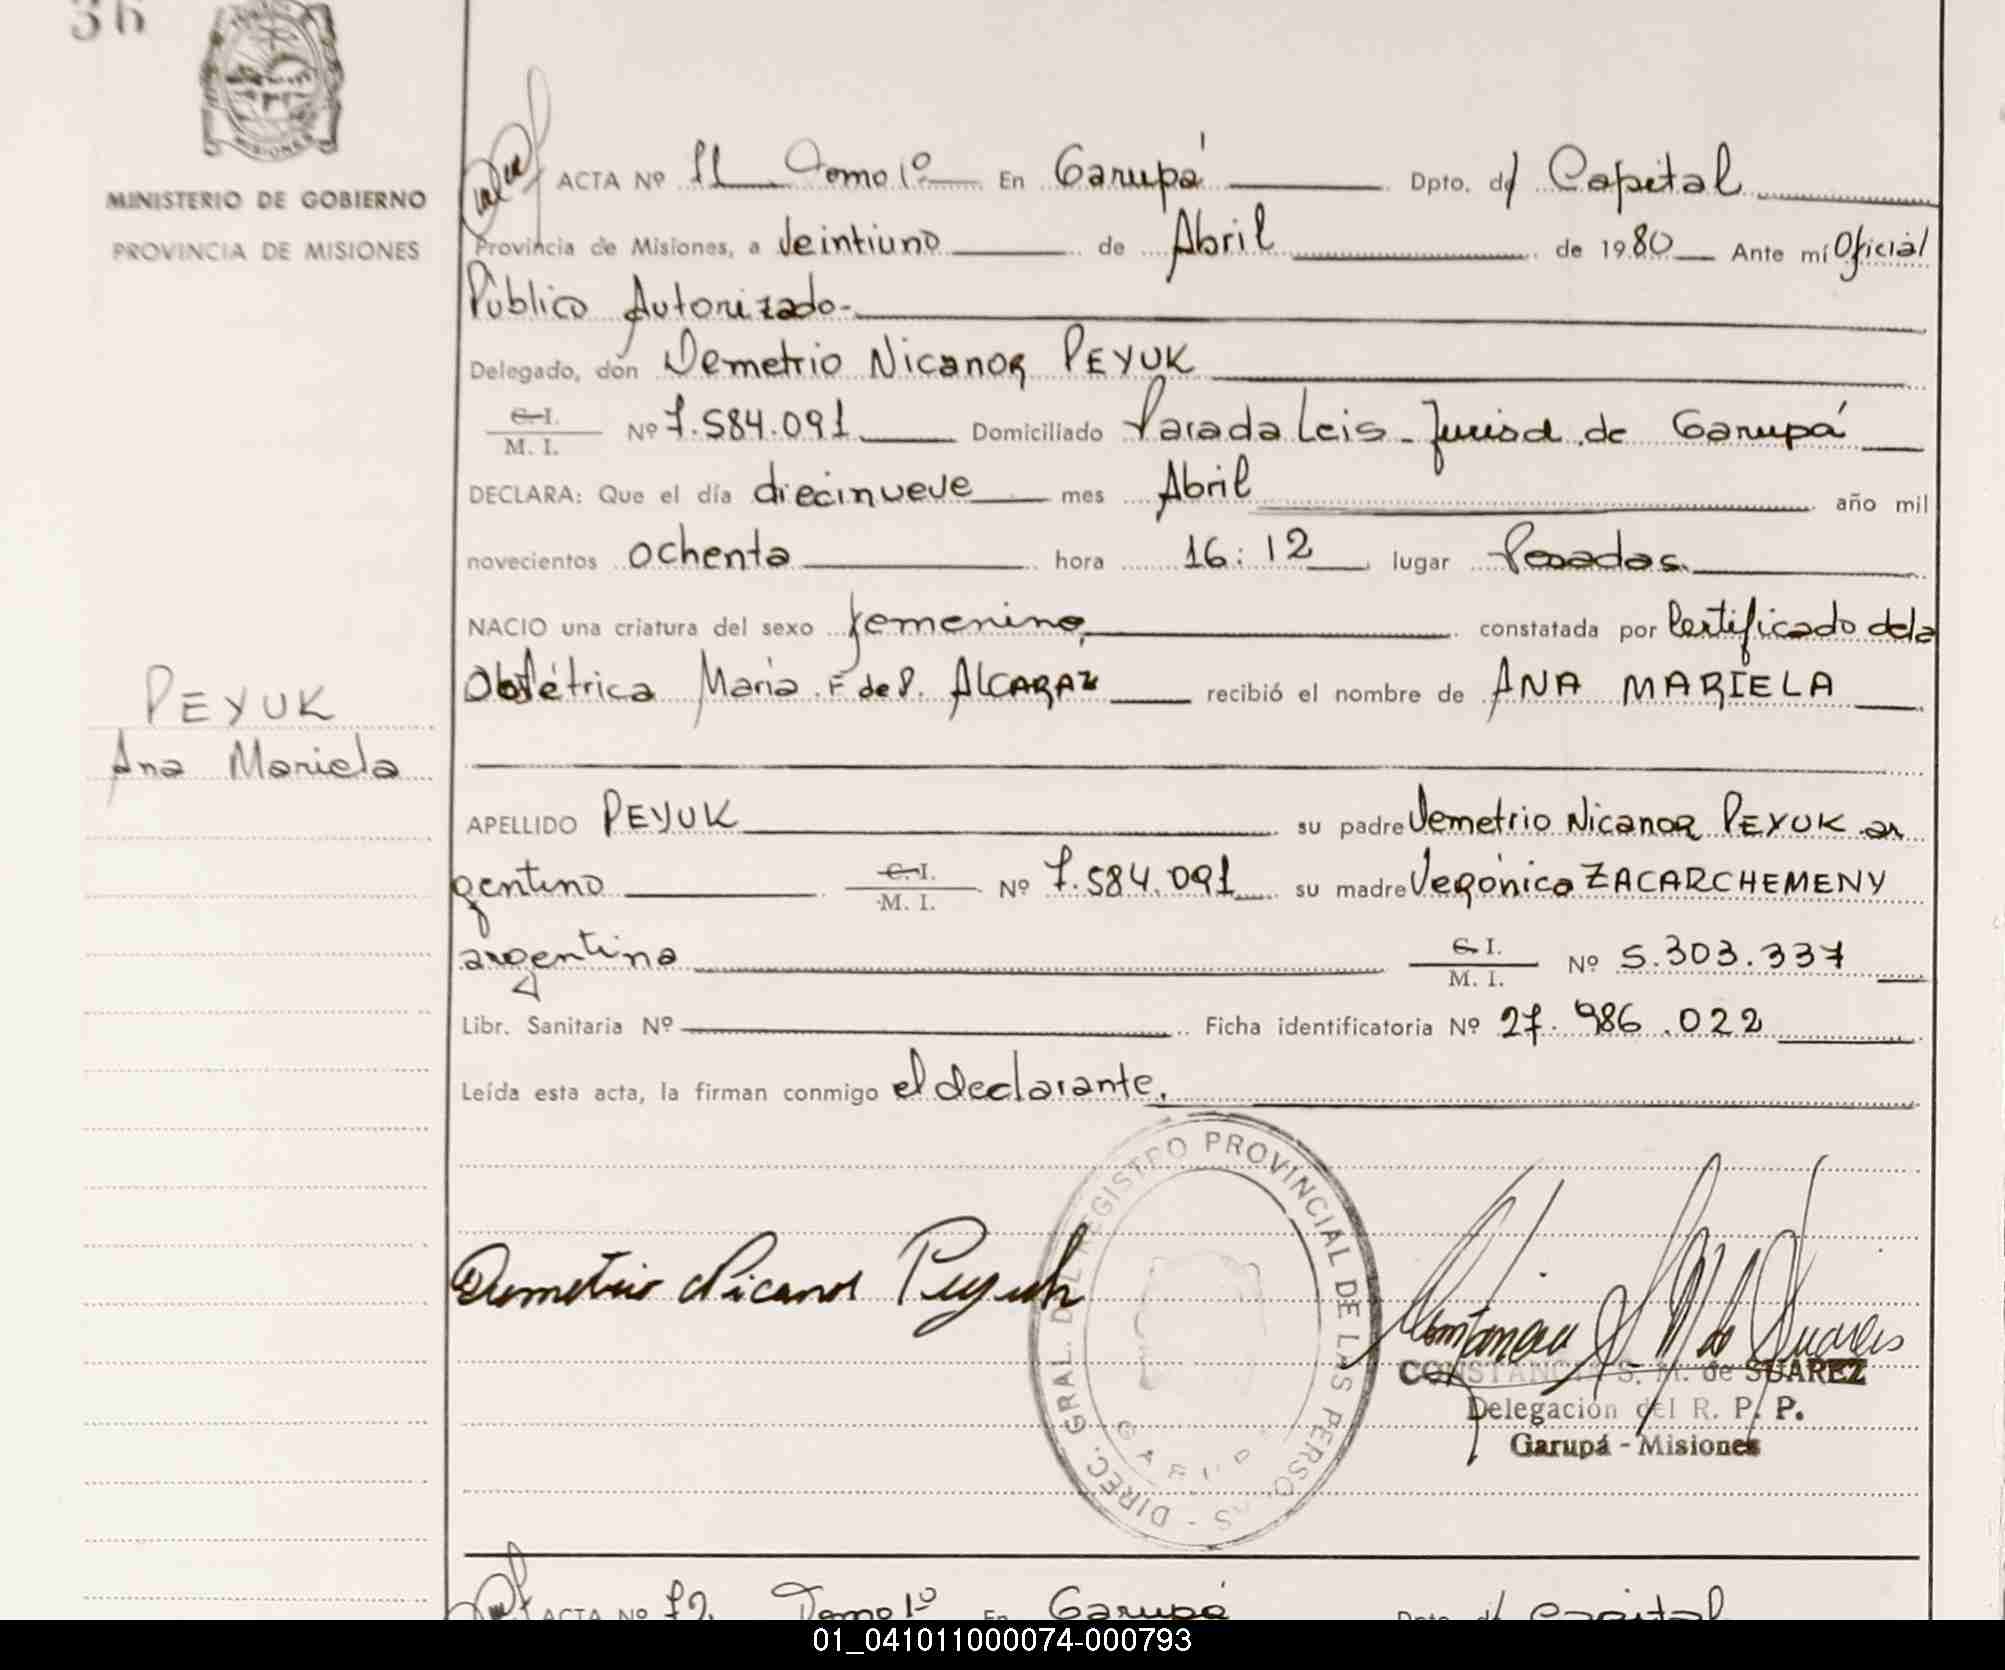 36
MISIONES
MINISTERIO DE GOBIERNO
PROVINCIA DE MISIONES
PEYUK
Ana Mariela
ACTA Nº 71 Tomo 1º En Garupá Dpto. d Capital
Provincia de Misiones, a Veintiuno de Abril de 1980 Ante mí Oficial
Público Autorizado-
Delegado, don Demetrio Nicanor PEYUK
C. I.
M. I. Nº 7.584.091 Domiciliado Parada Leis - Jurisd. de Garupá
DECLARA: Que el día diecinueve mes Abril año mil
novecientos ochenta hora 16:12 lugar Posadas
NACIO una criatura del sexo femenino, constatada por Certificado dela
Obstétrica Maria F de P. ALCARAZ recibió el nombre de ANA MARIELA
APELLIDO PEYUK su padre Demetrio Nicanor PEYUK ar
gentino C. I. M. I. Nº 7.584.091 su madre Verónica ZACARCHEMENY
argentina C. I. M. I. Nº 5.303.337
Libr. Sanitaria Nº Ficha identificatoria Nº 27.986.022
Leída esta acta, la firman conmigo el declarante.
DIREC. GRAL. DEL REGISTRO PROVINCIAL DE LAS PERSONAS -
GARUPA
Demetrio Nicanor Peyuk
Constancia S. M. de Suarez
CONSTANCIA S. M. de SUAREZ
Delegación del R. P. P.
Garupá - Misiones
ACTA Nº 72 Tomo 1º En Garupá Dpto. d Capital
01_041011000074-000793